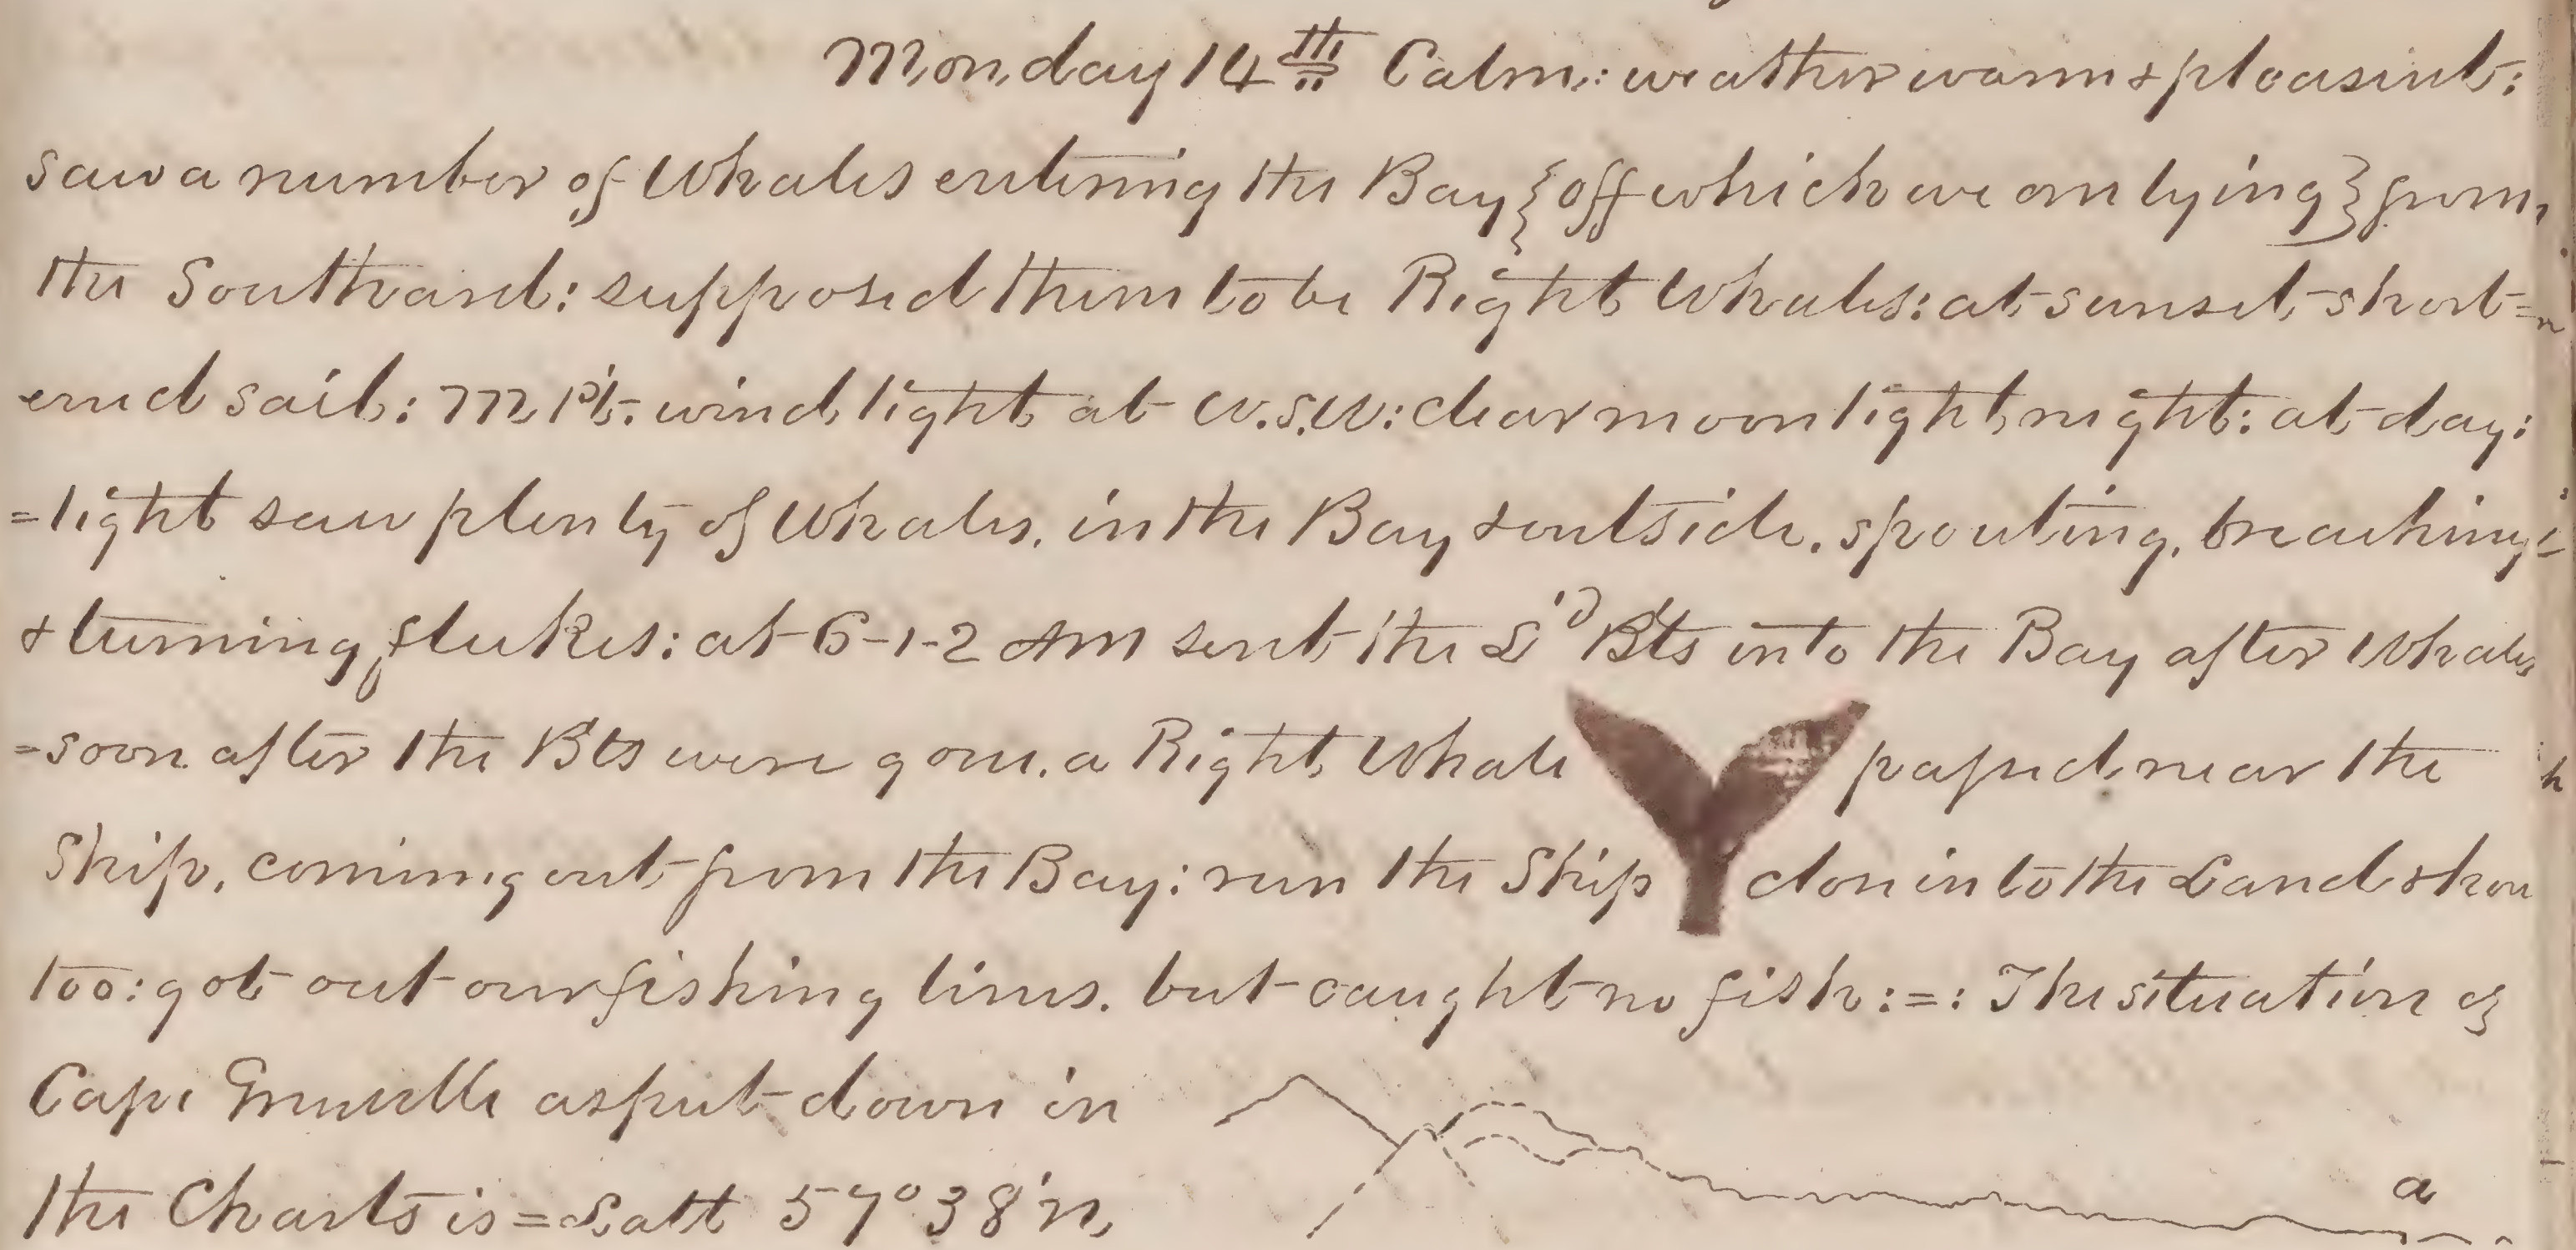 Monday 14th Calm: weather warm & pleasint:
saw a number of Whales entering the Bay {off which we are lying} from
the Southard: supposed them to be Right Whales: at sunset short=
ened sail: M Pt. wind light at W.S.W: clear moonlight night: at day:
=light saw plenty of Whales, in the Bay & outside, spouting, breaching
& turning flukes: at 6-1-2 AM sent the Bts into the Bay after Whales
=soon after the Bts were gone, a Right Whale passed near the
Ship, coming out from the Bay: run the Ship close in to the Land & hove
too: got out our fishing lines. but caught no fish:=: The situation of
Cape as put down in
the Charts is = Latt 57°38'N,
a